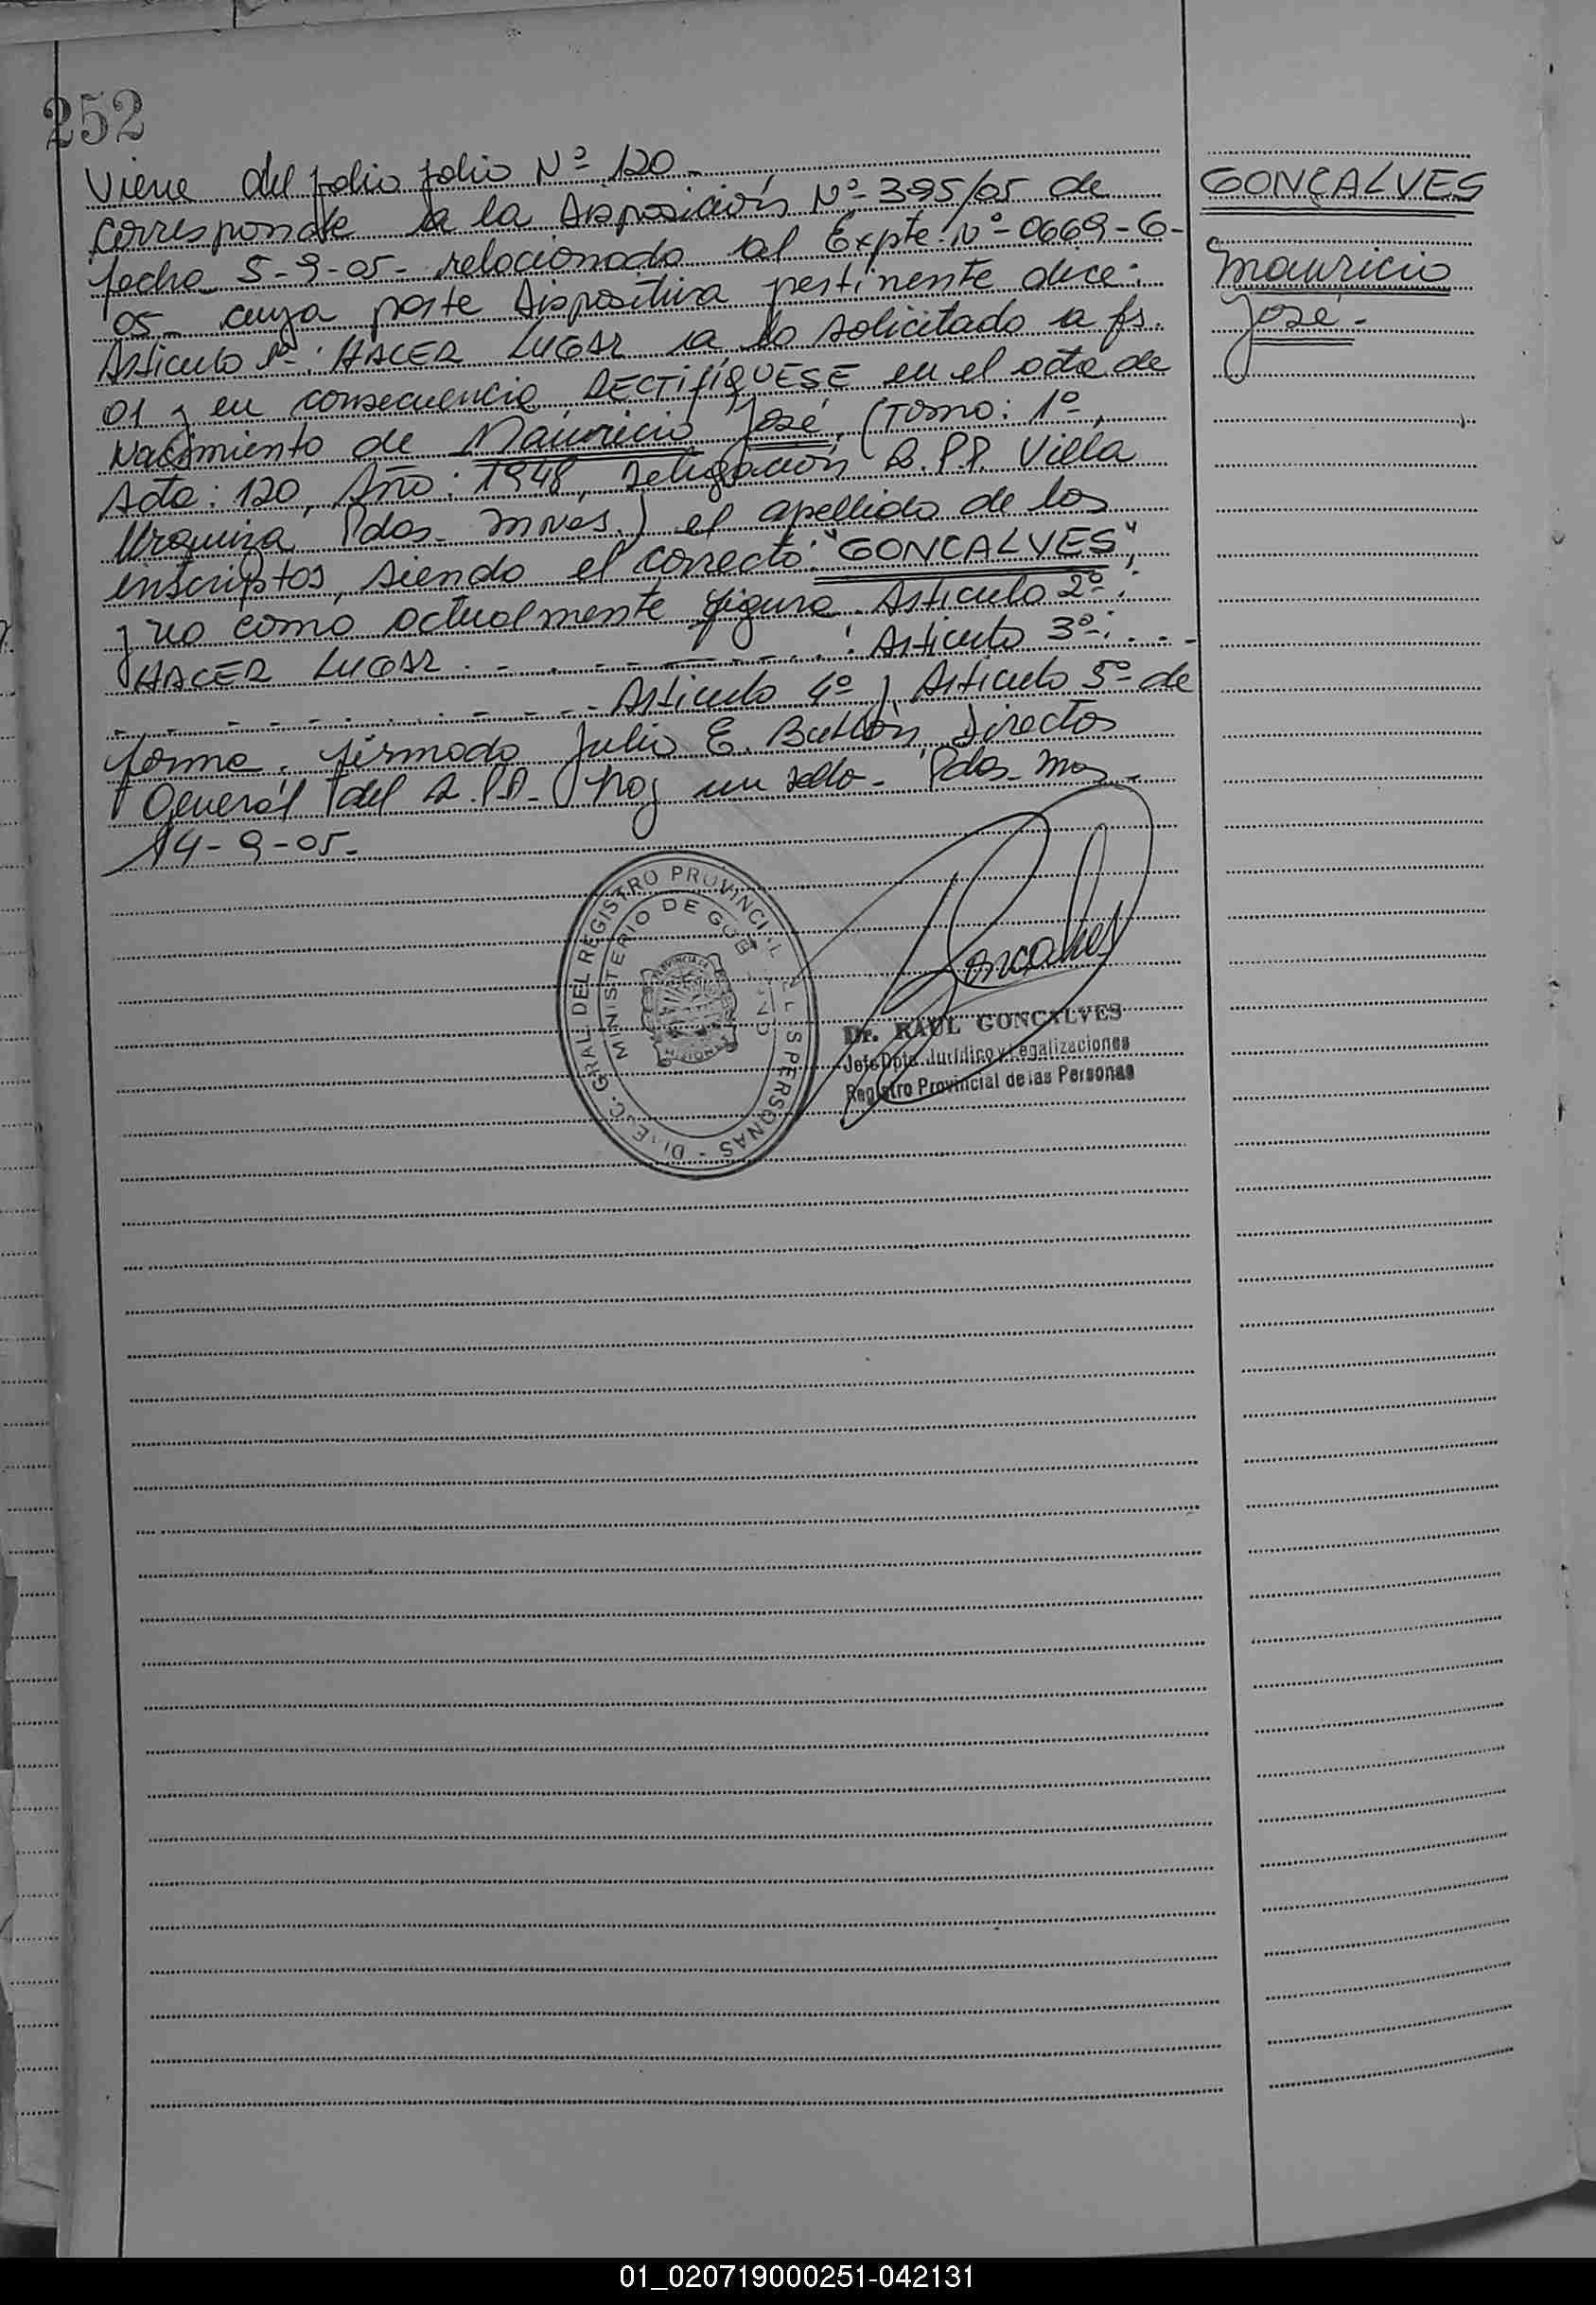 252
Viene del folio folio Nº 120.-
corresponde a la Disposición Nº 395/05 de
fecha 5-9-05- relacionado al Expte. Nº 0669-G-
05- cuya parte Dispositiva pertinente dice:
Artículo 1º: HACER LUGAR a lo solicitado a fs.
01 y en consecuencia, RECTIFÍQUESE en el acta de
Nacimiento de Mauricio José, (Tomo: 1º,
Acta: 120, Año: 1948, Delegación R.P.P. Villa
Urquiza Pdas. Mnes.) el apellido de los
inscriptos, siendo el correcto: "GONCALVES",
y no como actualmente figura. Artículo 2º:
HACER LUGAR. Artículo 3º:
Artículo 4º y Artículo 5º de
forma. firmado Julio E. Director
General del R.P.P. Hay un sello- Pdas. Mnes.
14-9-05-
GONÇALVES
Mauricio
José.-
DIREC. GRAL. DEL REGISTRO PROVINCIAL DE LAS PERSONAS -
MINISTERIO DE GOBIERNO
PROVINCIA DE
MISIONES
Goncalves
Dr. RAUL GONCALVES
Jefe Dpto. Jurídico y Legalizaciones
Registro Provincial de las Personas
01_020719000251-042131